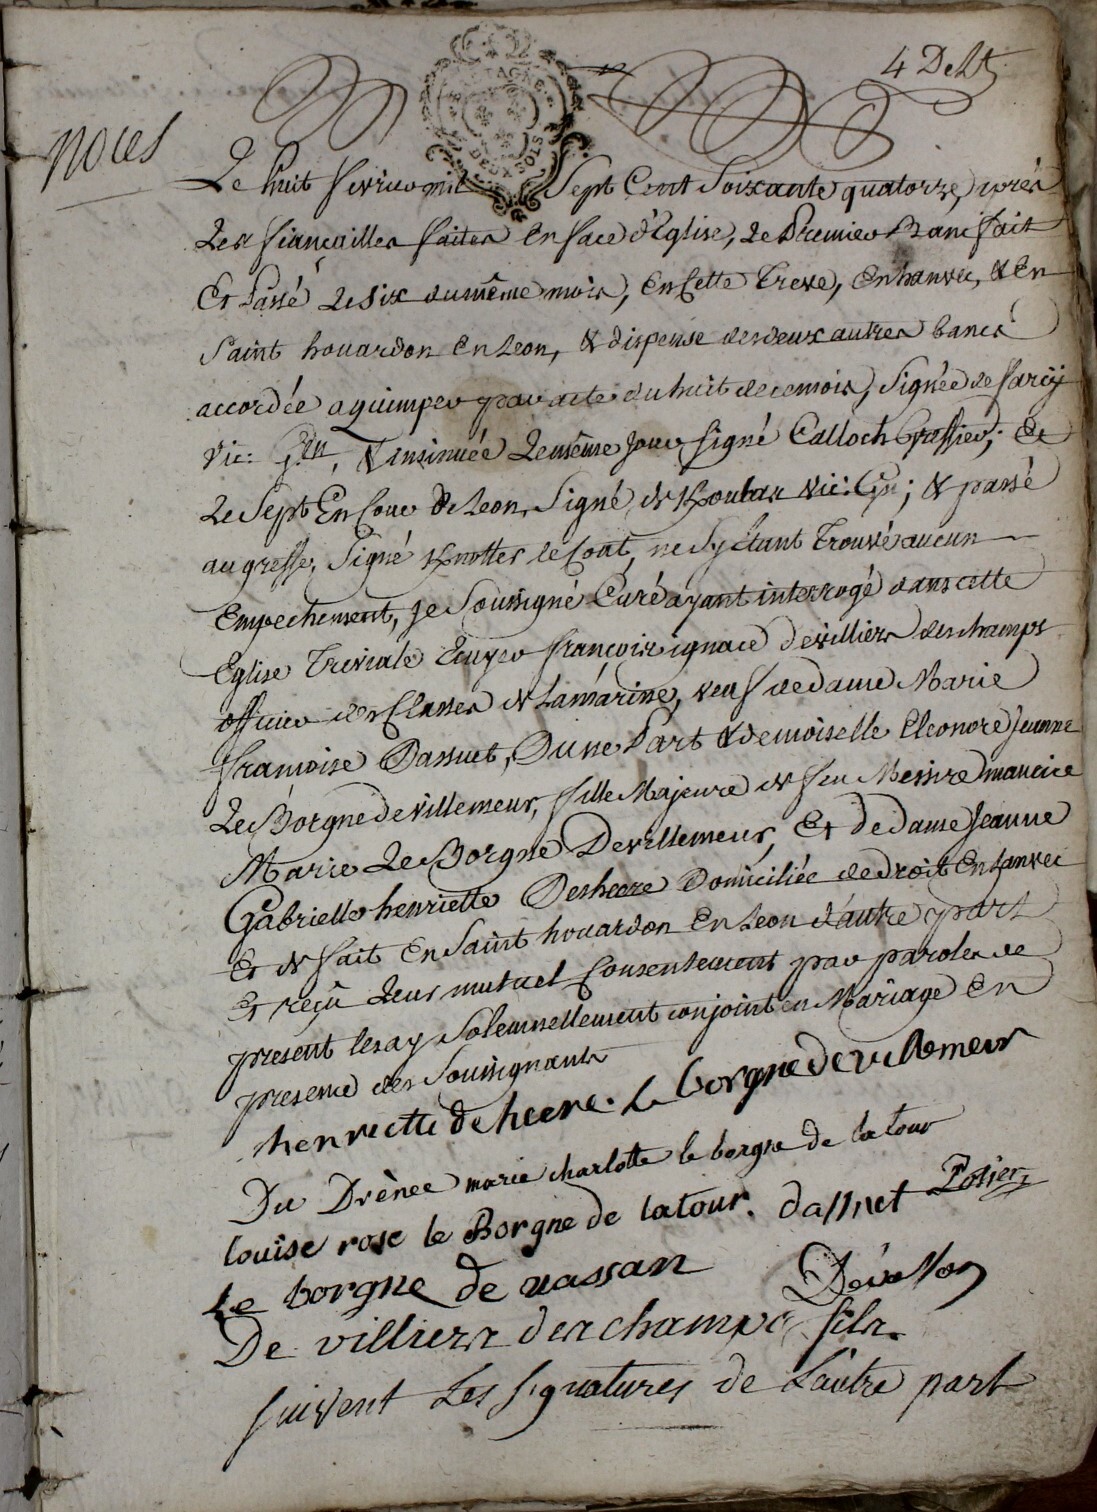 4 De
BRETAGNE
DEUX SOLS
Noces
Le huit fevrier mil Sept Cent Soixante quatorze, après
Les fiançailles faites en face d'Eglise, Le Premier Banc fait
Et Passé Le Six du même mois, en Cette Treve, en hanvec, & En
Saint houardon en Leon, & dispense des deux autres bancs
accordée a quimper par acte du huit de ce mois, Signée de Larcy
Vic: G.en, & insinuée Le même Jour Signé Calloch Greffier; Et
Le Sept En Cour de Leon, Signé, vic. ; & passé
au greffe, Signé le Cont, ne S'y étant Trouvé aucun
Empechement, Je Soussigné Curé ayant interrogé dans cette
Eglise Treviale Ecuyer françois ignace de villiers des champs
officier des Classes de La marine, veuf de dame Marie
françoise Dassnet, D'une Part & demoiselle Eleonore Jeanne
Le Borgne de villemeur, fille Majeure de feu Messire maurice
Marie Le Borgne De villemeur, Et de dame Jeanne
Gabrielle henriette Desheere Domiciliée de droit En hanvec
Et de fait En Saint houardon En Leon d'autre part
Et reçû Leur mutuel Consentement par paroles de
present les ay Solemnellement conjoint en Mariage En
presence des Soussignants
henriette de heere. Le borgne de villemeur
Du Drènec marie charlotte le borgne de la tour
louise rose le Borgne de latour. dassnet Potier
Le borgne de vassan
De villiers des champs fils.
suivent Les signatures de L'autre part